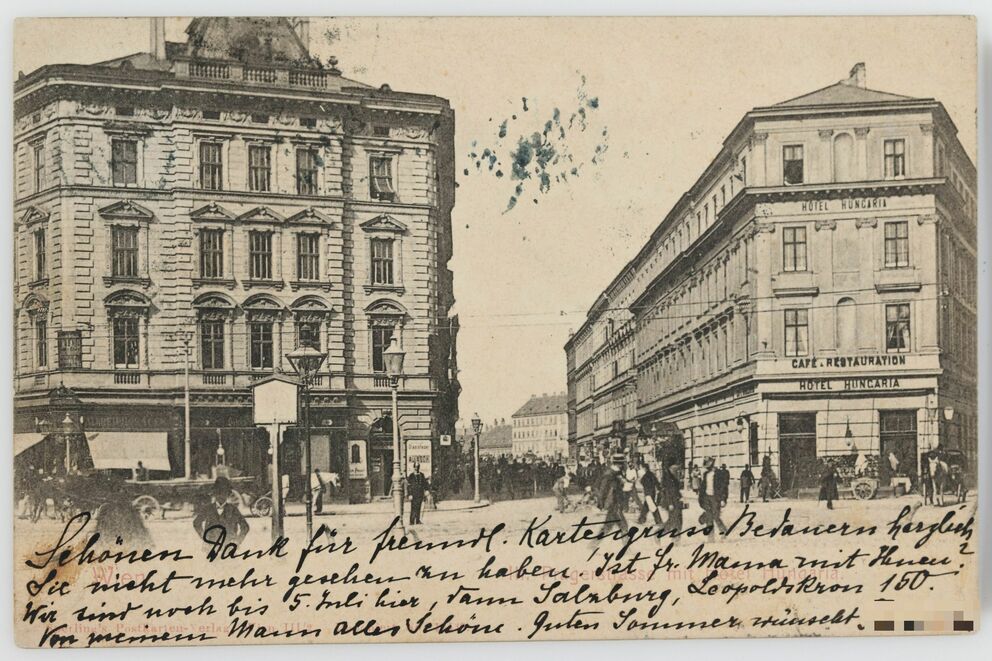 HÔTEL HUNGARIA
CAFÉ & RESTAURATION
HÔTEL HUNGARIA
Schönen Dank für freundl. Kartengruss. Bedauern herzlich
Sie nicht mehr gesehen zu haben. Ist Fr. Mama mit Ihnen?
Wir sind noch bis 5. Juli hier, dann Salzburg, Leopoldskron 150.
Von meinem Mann alles Schöne. Guten Sommer wünscht.
Wien
Postkarten-Verlag, Wien III/2